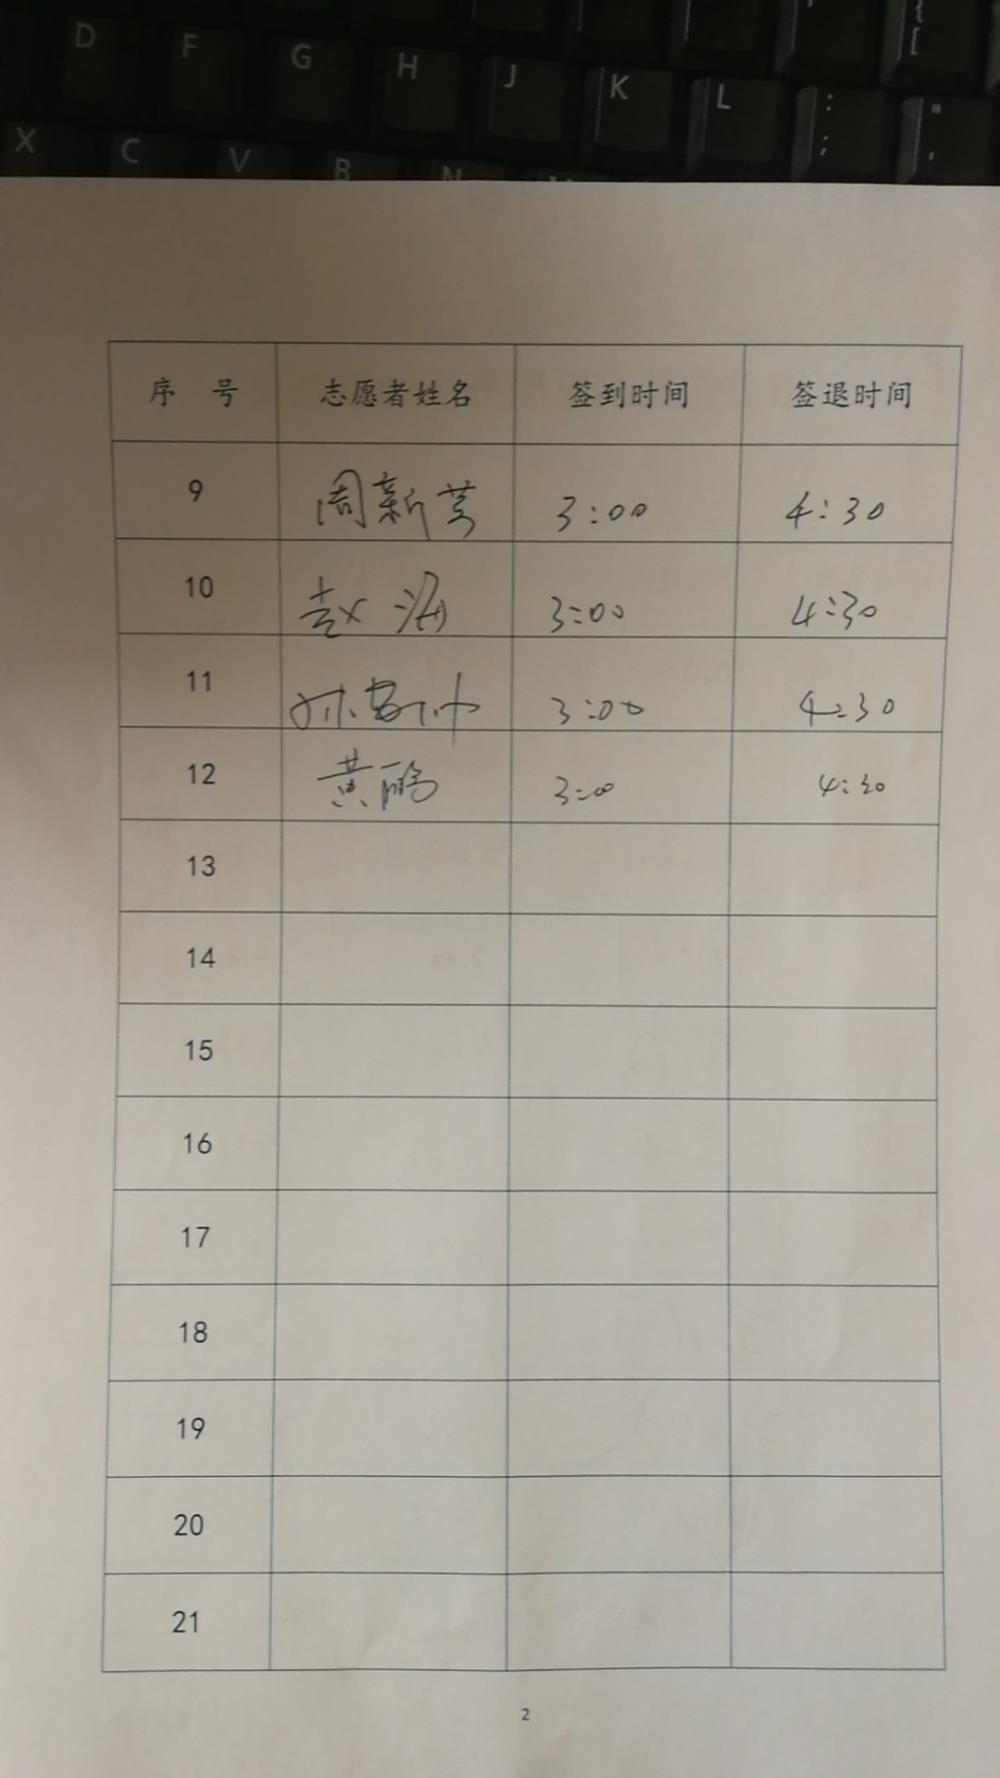 D F G H J K L : ; " ' { [
X C V B N
序 号 志愿者姓名 签到时间 签退时间
9 周新芳 3:00 4:30
10 赵海 3:00 4:30
11 3:00 4:30
12 黄鹂 3:00 4:30
13
14
15
16
17
18
19
20
21
2